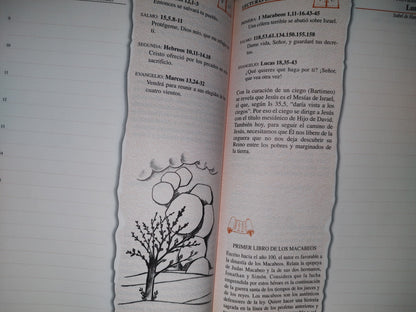 12,1-3
Entonces se salvará tu pueblo.
SALMO: 15,5.8-11
Protégeme, Dios mío, que me refugio en
ti.
SEGUNDA: Hebreos 10,11-14.18
Cristo ofreció por los pecados un solo
sacrificio.
EVANGELIO: Marcos 13,24-32
Vendrá para reunir a sus elegidos de los
cuatro vientos.
LECTURA
PRIMERA: 1 Macabeos 1,11-16.43-45
Una cólera terrible se abatió sobre Israel.
SALMO: 118,53.61.134.150.155.158
Dame vida, Señor, y guardaré tus decre-
tos.
EVANGELIO: Lucas 18,35-43
¿Qué quieres que haga por ti? ¡Señor,
que vea otra vez!
Con la curación de un ciego (Bartimeo)
se revela que Jesús es el Mesías de Israel,
al que, según Is 35,5, "daría vista a los
ciegos". Por eso el ciego se dirige a Jesús
con el título mesiánico de Hijo de David.
También hoy, para seguir el camino de
Jesús, necesitamos que Él nos libere de la
ceguera que no nos deja descubrir su
Reino entre los pobres y marginados de
la tierra.
PRIMER LIBRO DE LOS MACABEOS
Escrito hacia el año 100, el autor es favorable a
la dinastía de los Macabeos. Relata la epopeya
de Judas Macabeo y de sus dos hermanos,
Jonathan y Simón. Considera que la lucha
emprendida por estos héroes es la continuación
de la guerra santa de los tiempos de los jueces y
de los reyes. Los macabeos son los auténticos
defensores de la ley. Quiere hacer una historia
sagrada en la línea de los profetas anteriores y